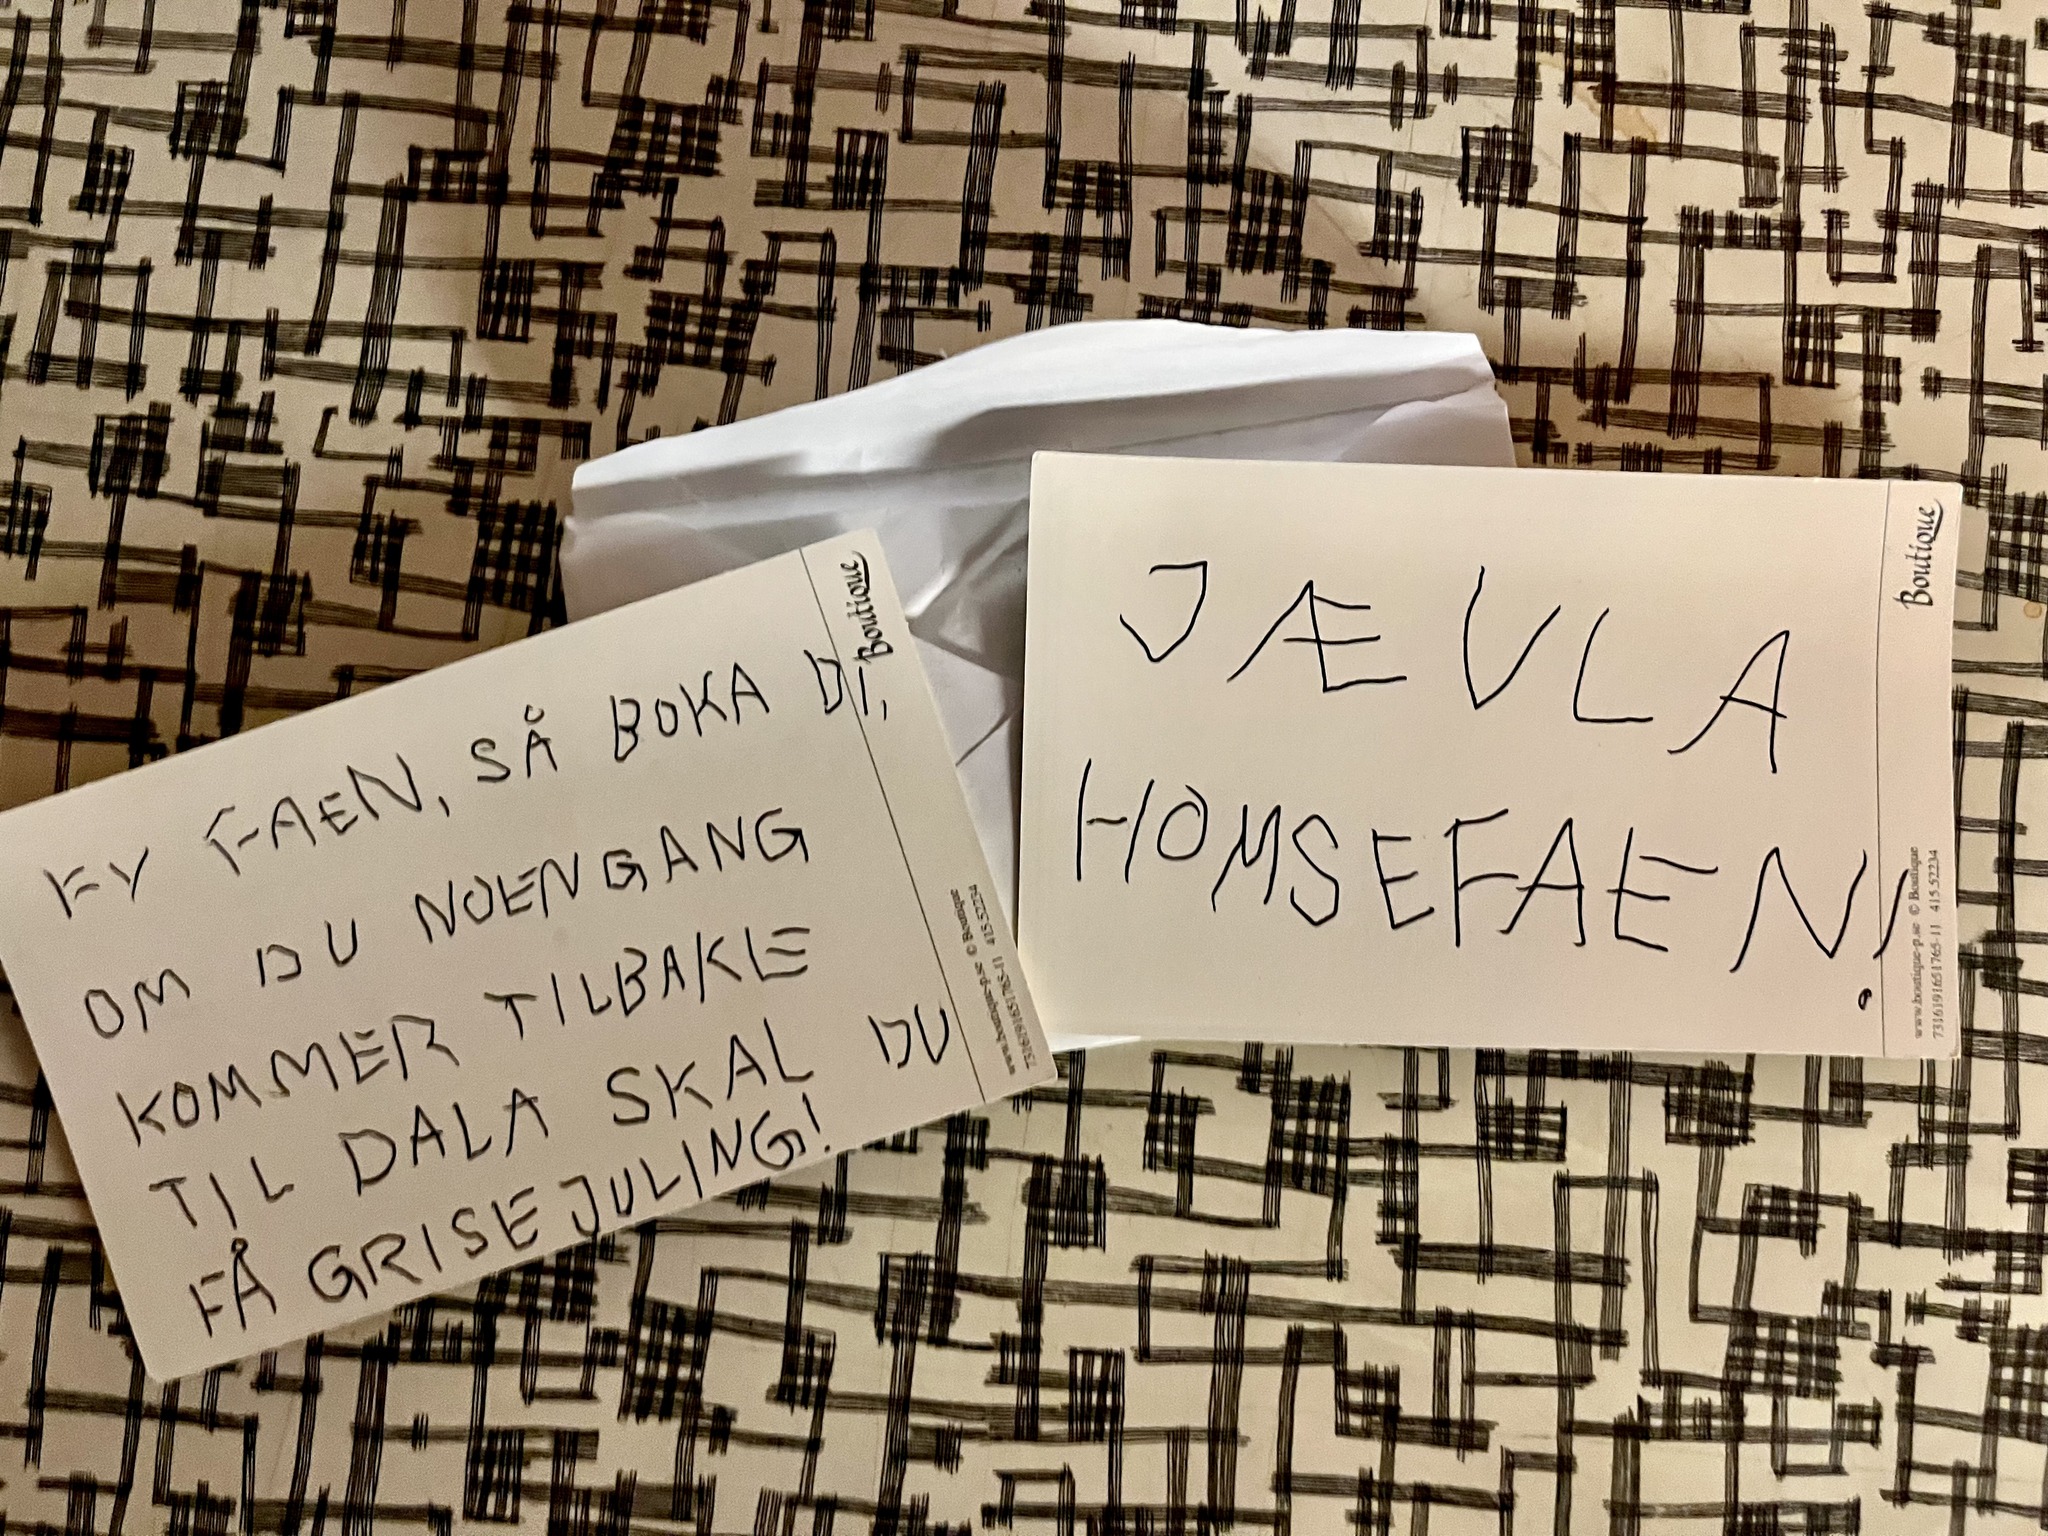 EY FAEN, SÅ BOKA DI,
OM DU NOENGANG
KOMMER TILBAKE
TIL DALA SKAL DU
FÅ GRISEJULING!
Boutique
www.boutique-p.se © Boutique
7316191651765-11 415.52234
JÆVLA
HOMSEFAEN!
Boutique
www.boutique-p.se © Boutique
7316191651765-11 415.52234